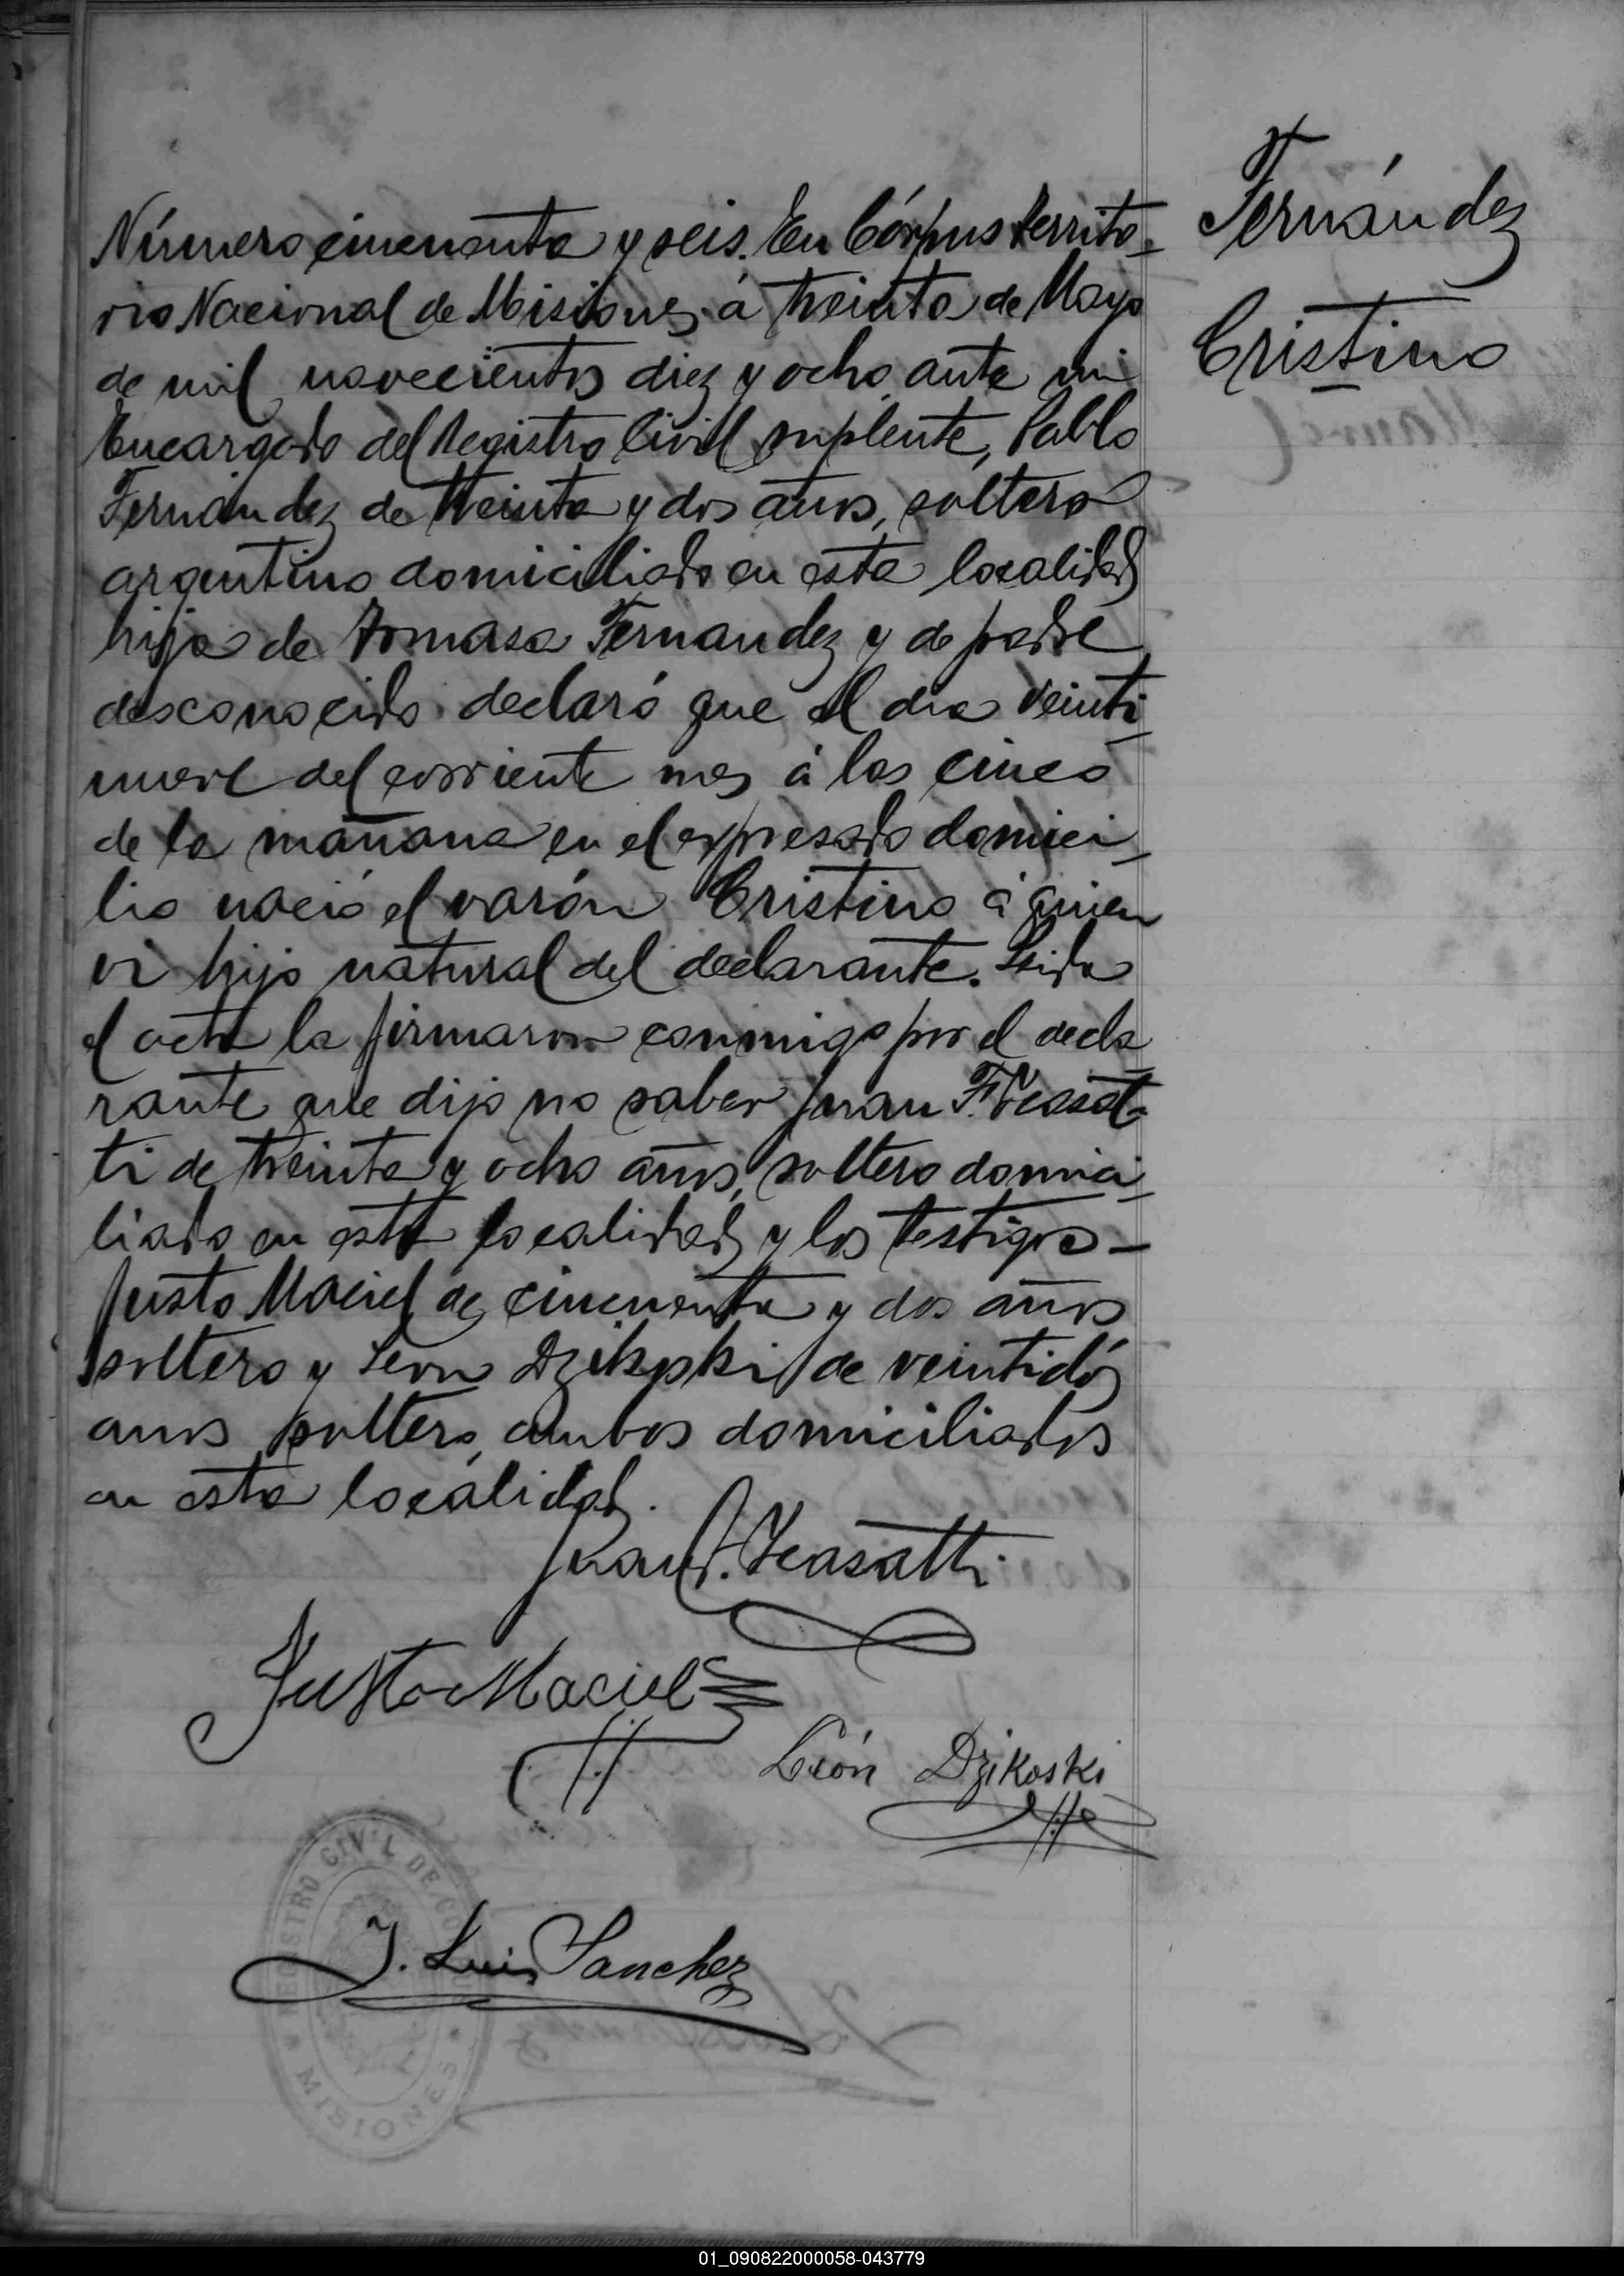 Número cincuenta y seis. En Córpus Territo-
rio Nacional de Misiones, á treinta de Mayo
de mil novecientos diez y ocho, ante mi
Encargado del Registro Civil suplente, Pablo
Fernández de treinta y dos años, soltero
argentino domiciliado en esta localidad
hijo de Tomasa Fernandez y de padre
desconocido declaró que el dia veinti-
nueve del corriente mes á las cinco
de la mañana en el expresado domici-
lio nació el varón Cristino á quien
vi hijo natural del declarante. Leida
el acta la firmaron conmigo por el decla-
rante que dijo no saber Juan F.
ti de treinta y ocho años, soltero domici-
liado en esta localidad y los testigos -
Justo Maciel de cincuenta y dos años
soltero y Leon Dzikoski de veintidós
anos soltero, ambos domiciliados
en esta localidad.
Fernández
Cristino
Juan F.
Justo Maciel
León Dzikoski
J. Luis Sanchez
REGISTRO CIVIL DE CO
* MISIONES *
01_090822000058-043779